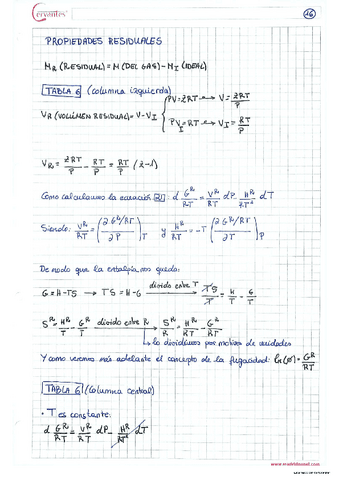 cervantes
16
PROPIEDADES RESIDUALES
M_R (RESIDUAL) = M (DEL GAS) - M_I (IDEAL)
TABLA 6 (columna izquierda)
PV = ZRT → V = ZRT/P
V_R (VOLUMEN RESIDUAL) = V - V_I
PV_I = RT → V_I = RT/P
V_R = ZRT/P - RT/P = RT/P (Z-1)
Como calculamos la ecuación 21: d G^R/RT = V^R/RT dP - H^R/RT² dT
Siendo: V^R/RT = (∂G^R/RT / ∂P)_T y H^R/RT = -T (∂G^R/RT / ∂T)_P
De modo que la entalpía nos queda:
G = H - TS → TS = H - G divido entre T → TS/T = H/T - G/T
S^R = H^R/T - G^R/T divido entre R → S^R/R = H^R/RT - G^R/RT
lo dividimos por motivos de unidades
Y como veremos más adelante el concepto de la fugacidad: ln(Ø) = G^R/RT
TABLA 6 (columna central)
• T es constante:
d G^R/RT = V^R/RT dP - H^R/RT² dT